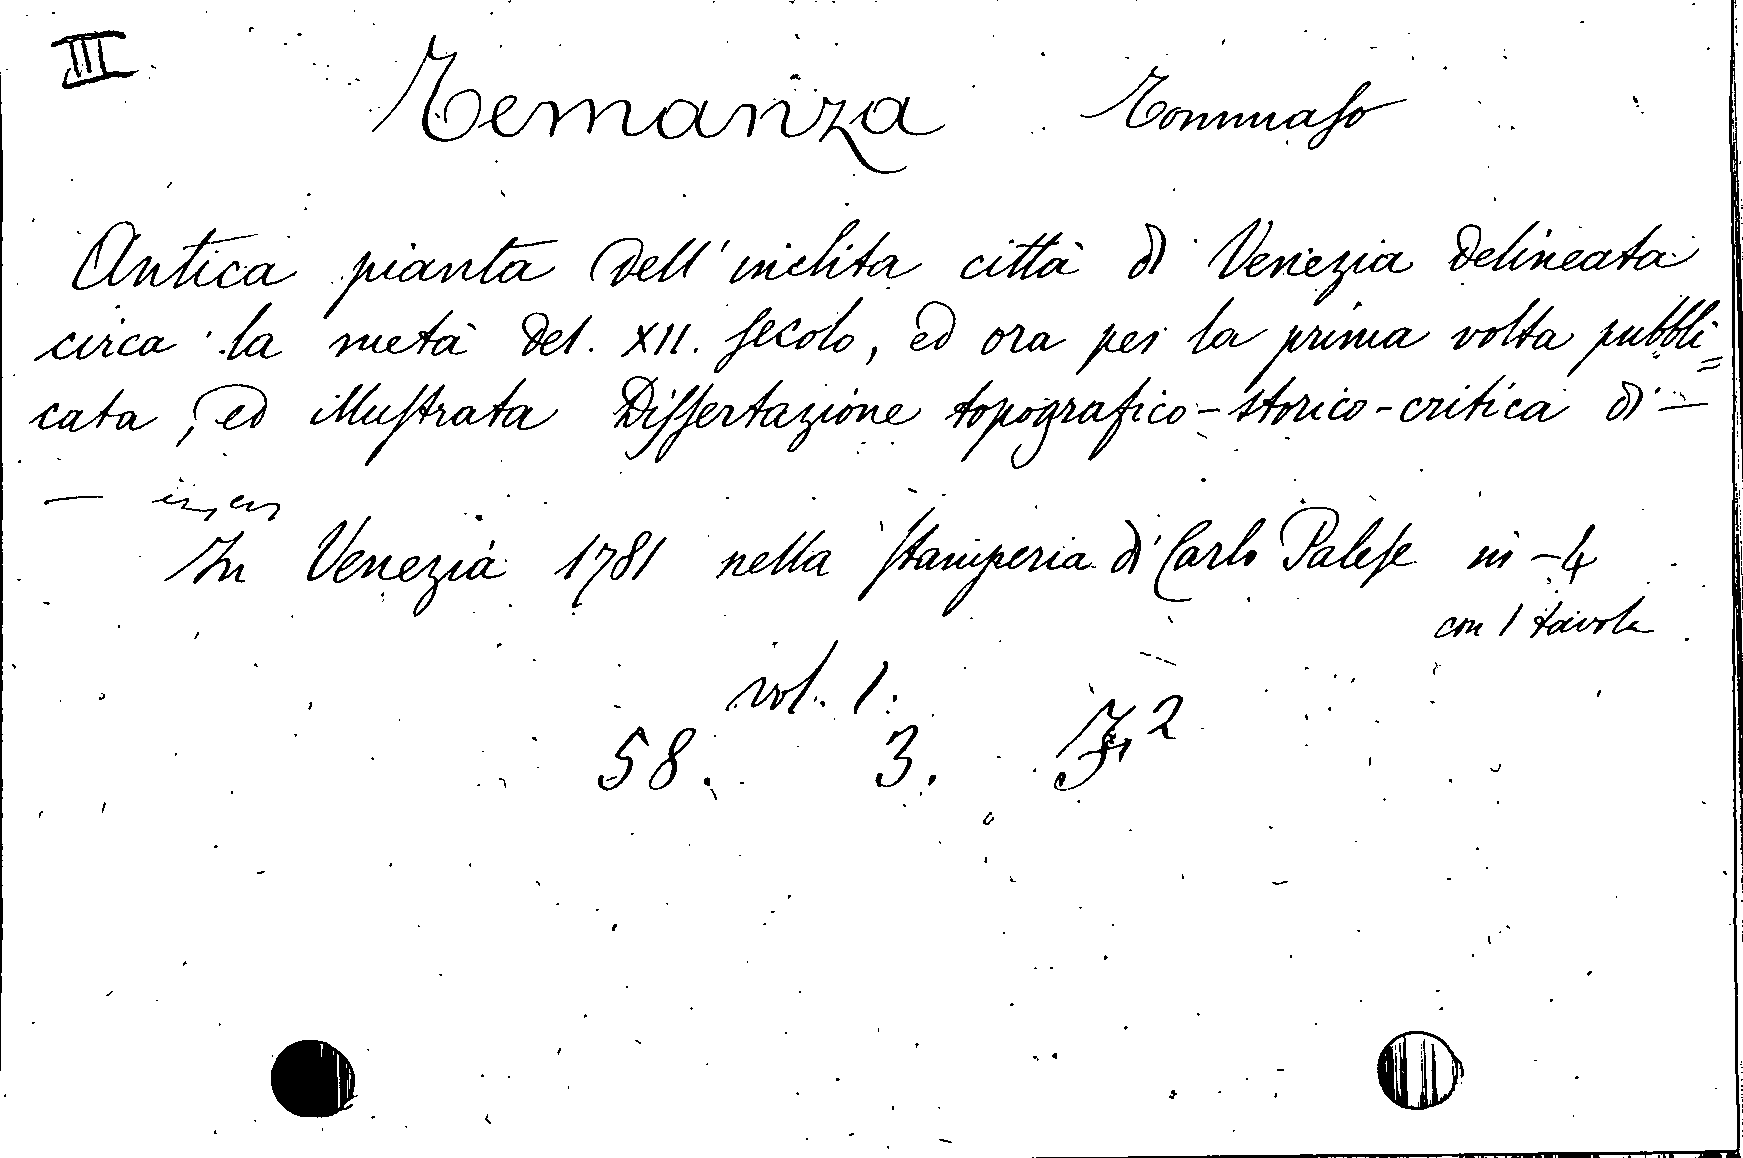 III
Temanza Tommaso
Antica pianta dell'inclita città di Venezia delineata
circa la metà del. XII. secolo, ed ora per la prima volta pubbli=
cata, ed illustrata Dissertazione topografico-storico-critica di —
—
In Venezia 1781 nella stamperia di Carlo Palese in-4
con 1 tavola
vol. 1.
58. 3.